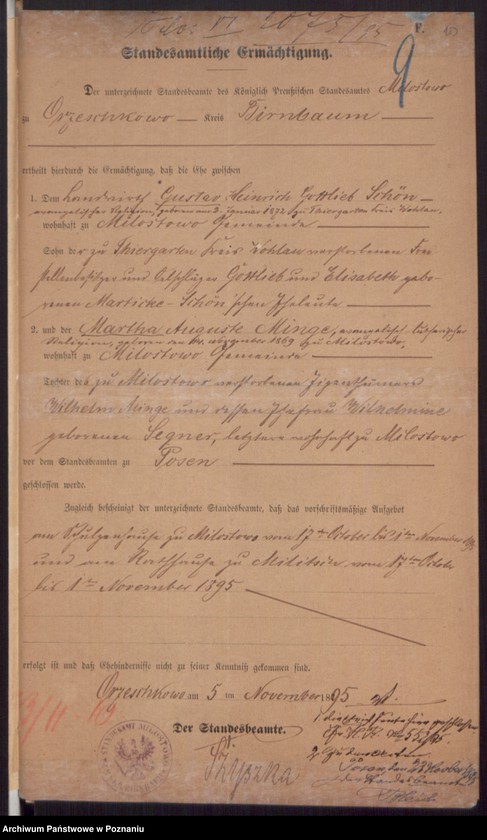 F.
9
Standesamtliche Ermächtigung.
Der unterzeichnete Standesbeamte des Königlich Preußischen Standesamtes Milostowo
zu Orzeschkowo Kreis Birnbaum
ertheilt hierdurch die Ermächtigung, daß die Ehe zwischen
1. Dem Landwirth Gustav Heinrich Gottlieb Schön
evangelischer Religion, geboren am Januar 1872 zu Thiergarten Kreis Wohlau,
wohnhaft zu Milostowo Gemeinde
Sohn der zu Thiergarten Kreis Wohlau verstorbenen
Gottlieb und Elisabeth gebo-
renen Marticke-Schön'schen Eheleute
2. und der Martha Auguste Minge, evangelisch-lutherischer
Religion, geboren den November 1869 zu Milostowo,
wohnhaft zu Milostowo Gemeinde
Tochter des zu Milostowo verstorbenen Eigenthümers
Wilhelm Minge und dessen Ehefrau Wilhelmine
geborenen Segner, letztere wohnhaft zu Milostowo
vor dem Standesbeamten zu Posen
geschlossen werde.
Zugleich bescheinigt der unterzeichnete Standesbeamte, daß das vorschriftsmäßige Aufgebot
am Schulzenhause zu Milostowo vom 17ten October bis 1ten November
und am Rathhause zu Militsch vom 17ten October
bis 1ten November 1895
erfolgt ist und daß Ehehindernisse nicht zu seiner Kenntniß gekommen sind.
Orzeschkowo am 5 ten November 1895
Der Standesbeamte.
Posen, den November
der Standesbeamte
Archiwum Państwowe w Poznaniu